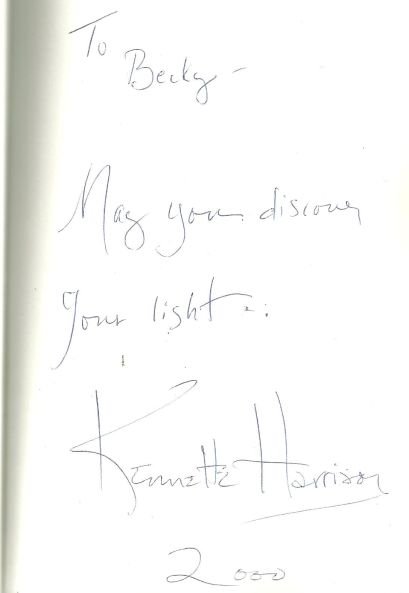 To
Becky -
May you discover
your light...
Kennette Harrison
2000